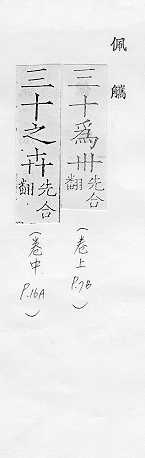 佩觿
三十為卅先合翻
(卷上 P.7B)
三十之卉先合翻
(卷中 P.16A)